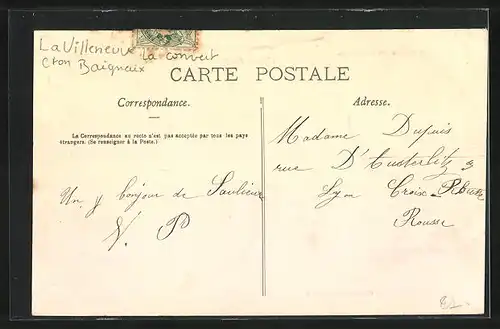 La Villeneuve la convert
Cton Baigneux
CARTE POSTALE
Correspondance.
Adresse.
La Correspondance au recto n'est pas acceptée par tous les pays
étrangers. (Se renseigner à la Poste.)
Madame Dupuis
rue D'Austerlitz
Lyon Croix-
Rousse
Un bonjour de Saulieu
V. P